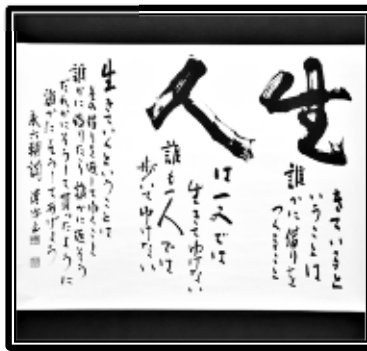 生
きていると
いうことは
誰かに借りを
つくること
人
は一人では
生きてゆけない
誰も一人では
歩いてゆけない
生きていくということは
その借りを返してゆくこと
誰かに借りたら誰かに返そう
だれかにそうして貰ったように
誰かにそうしてあげよう
永六輔詞